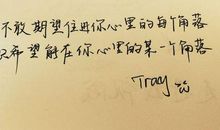 不敢期望住进你心里的每个角落
只希望能在你心里的某一个角落
Tracy